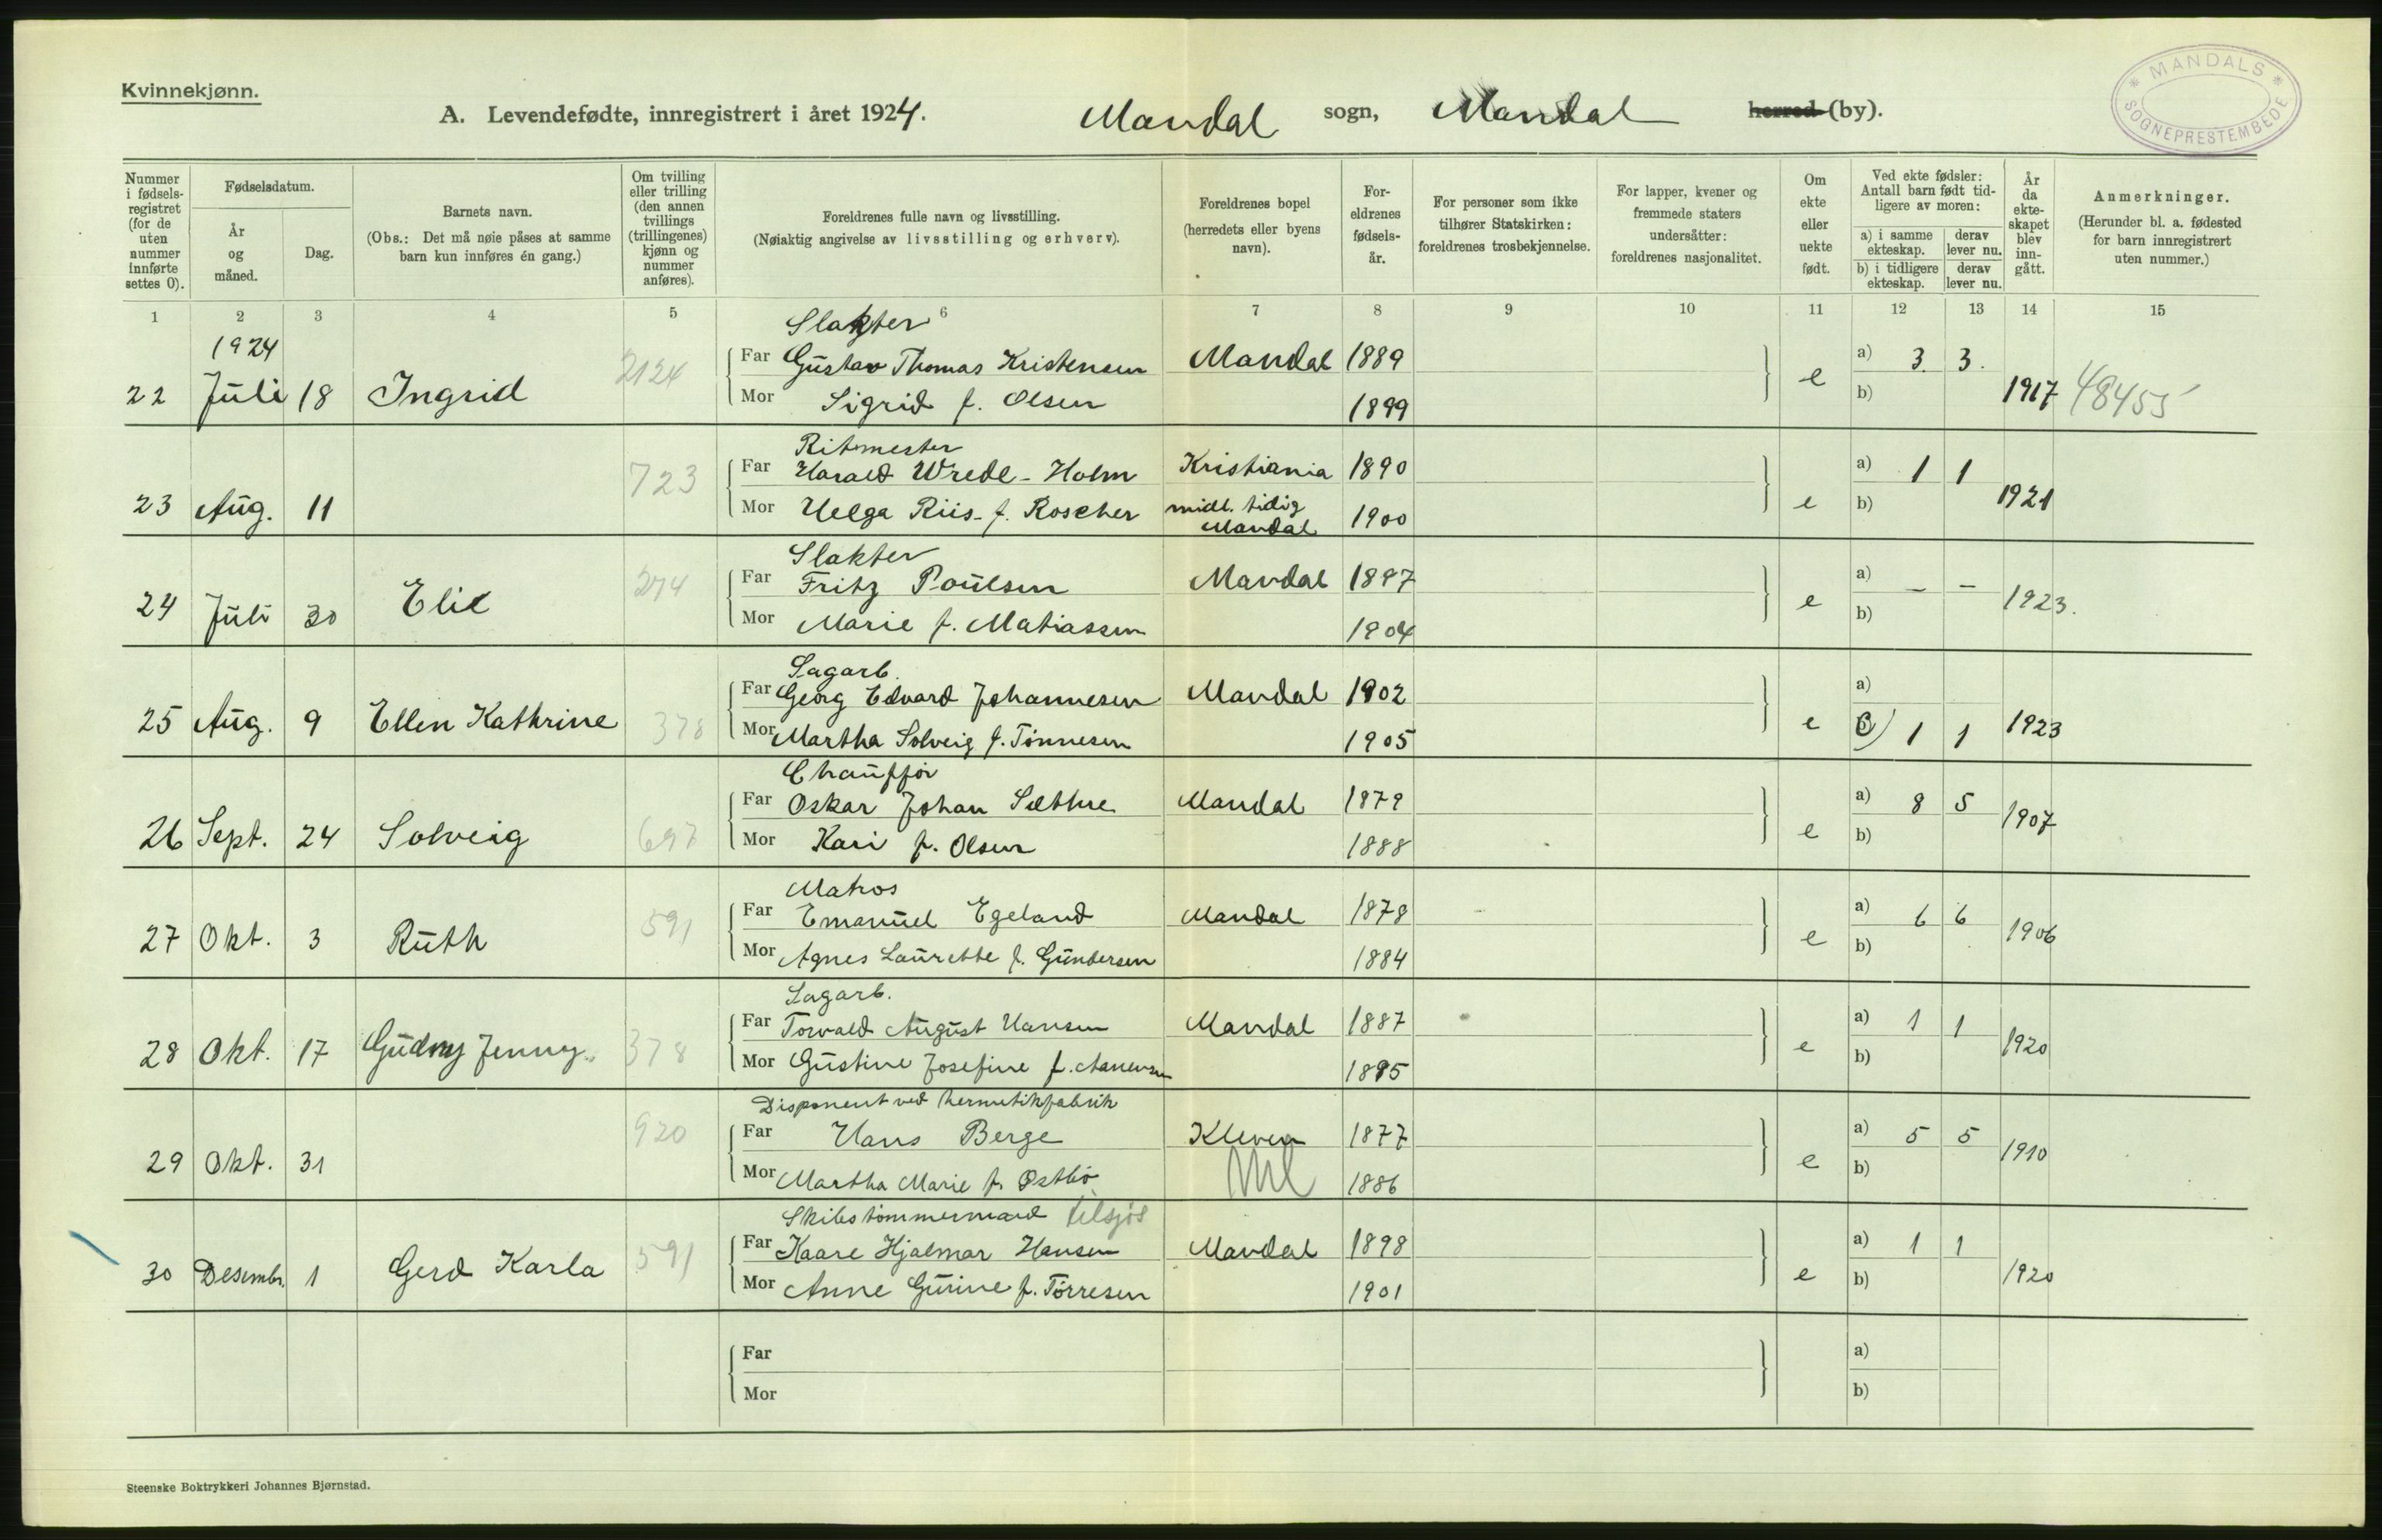 Kvinnekjønn.
MANDALS SOGNEPRESTEMBEDE
A. Levendefødte, innregistrert i året 1924. Mandal sogn, Mandal herred (by).
Nummer i fødsels-registret (for de uten nummer innførte settes 0).
Fødselsdatum.
År og måned.
Dag.
Barnets navn.
(Obs.: Det må nøie påses at samme barn kun innføres én gang.)
Om tvilling eller trilling (den annen tvillings (trillingenes) kjønn og nummer anføres).
Foreldrenes fulle navn og livsstilling.
(Nøiaktig angivelse av livsstilling og erhverv).
Foreldrenes bopel
(herredets eller byens navn).
For-eldrenes fødsels-år.
For personer som ikke tilhører Statskirken: foreldrenes trosbekjennelse.
For lapper, kvener og fremmede staters undersåtter: foreldrenes nasjonalitet.
Om ekte eller uekte født.
Ved ekte fødsler: Antall barn født tid-ligere av moren:
a) i samme ekteskap.
derav lever nu.
b) i tidligere ekteskap.
derav lever nu.
År da ekte-skapet blev inn-gått.
Anmerkninger.
(Herunder bl. a. fødested for barn innregistrert uten nummer.)
1 2 3 4 5 6 7 8 9 10 11 12 13 14 15
1924
Slakter
22 Juli 18 Ingrid 2124 Far Gustav Thomas Kristensen Mandal 1889 e a) 3 3. 1917 48455
Mor Sigrid f. Olsen 1899 b)
Ritmester
23 Aug. 11 723 Far Harald Wrede-Holm Kristiania 1890 e a) 1 1 1921
Mor Helga Riis f. Roscher midl. tidig Mandal 1900 b)
Slakter
24 Juli 30 Elie 274 Far Fritz Poulsen Mandal 1897 e a) – – 1923.
Mor Marie f. Matiassen 1904 b)
Sagarb.
25 Aug. 9 Ellen Kathrine 378 Far Georg Edvard Johannesen Mandal 1902 e a) 1923
Mor Martha Solveig f. Tønnesen 1905 b) 1 1
Chauffør
26 Sept. 24 Solveig 697 Far Oskar Johan Sæthre Mandal 1879 e a) 8 5 1907
Mor Kari f. Olsen 1888 b)
Matros
27 Okt. 3 Ruth 591 Far Emanuel Egeland Mandal 1878 e a) 6 6 1906
Mor Agnes Laurette f. Gundersen 1884 b)
Sagarb.
28 Okt. 17 Gudny Jenny 378 Far Torvald August Hansen Mandal 1887 e a) 1 1 1920
Mor Gustine Josefine f. Aanensen 1895 b)
Disponent ved hermetikfabrik
29 Okt. 31 920 Far Hans Berge Kleven 1877 e a) 5 5 1910
Mor Martha Marie f. Østbø 1886 b)
Skibstømmermand tilsjøs
30 Desembr. 1 Gerd Karla 591 Far Kaare Hjalmar Hansen Mandal 1898 e a) 1 1 1920
Mor Anne Gurine f. Tørresen 1901 b)
Far a)
Mor b)
Steenske Boktrykkeri Johannes Bjørnstad.